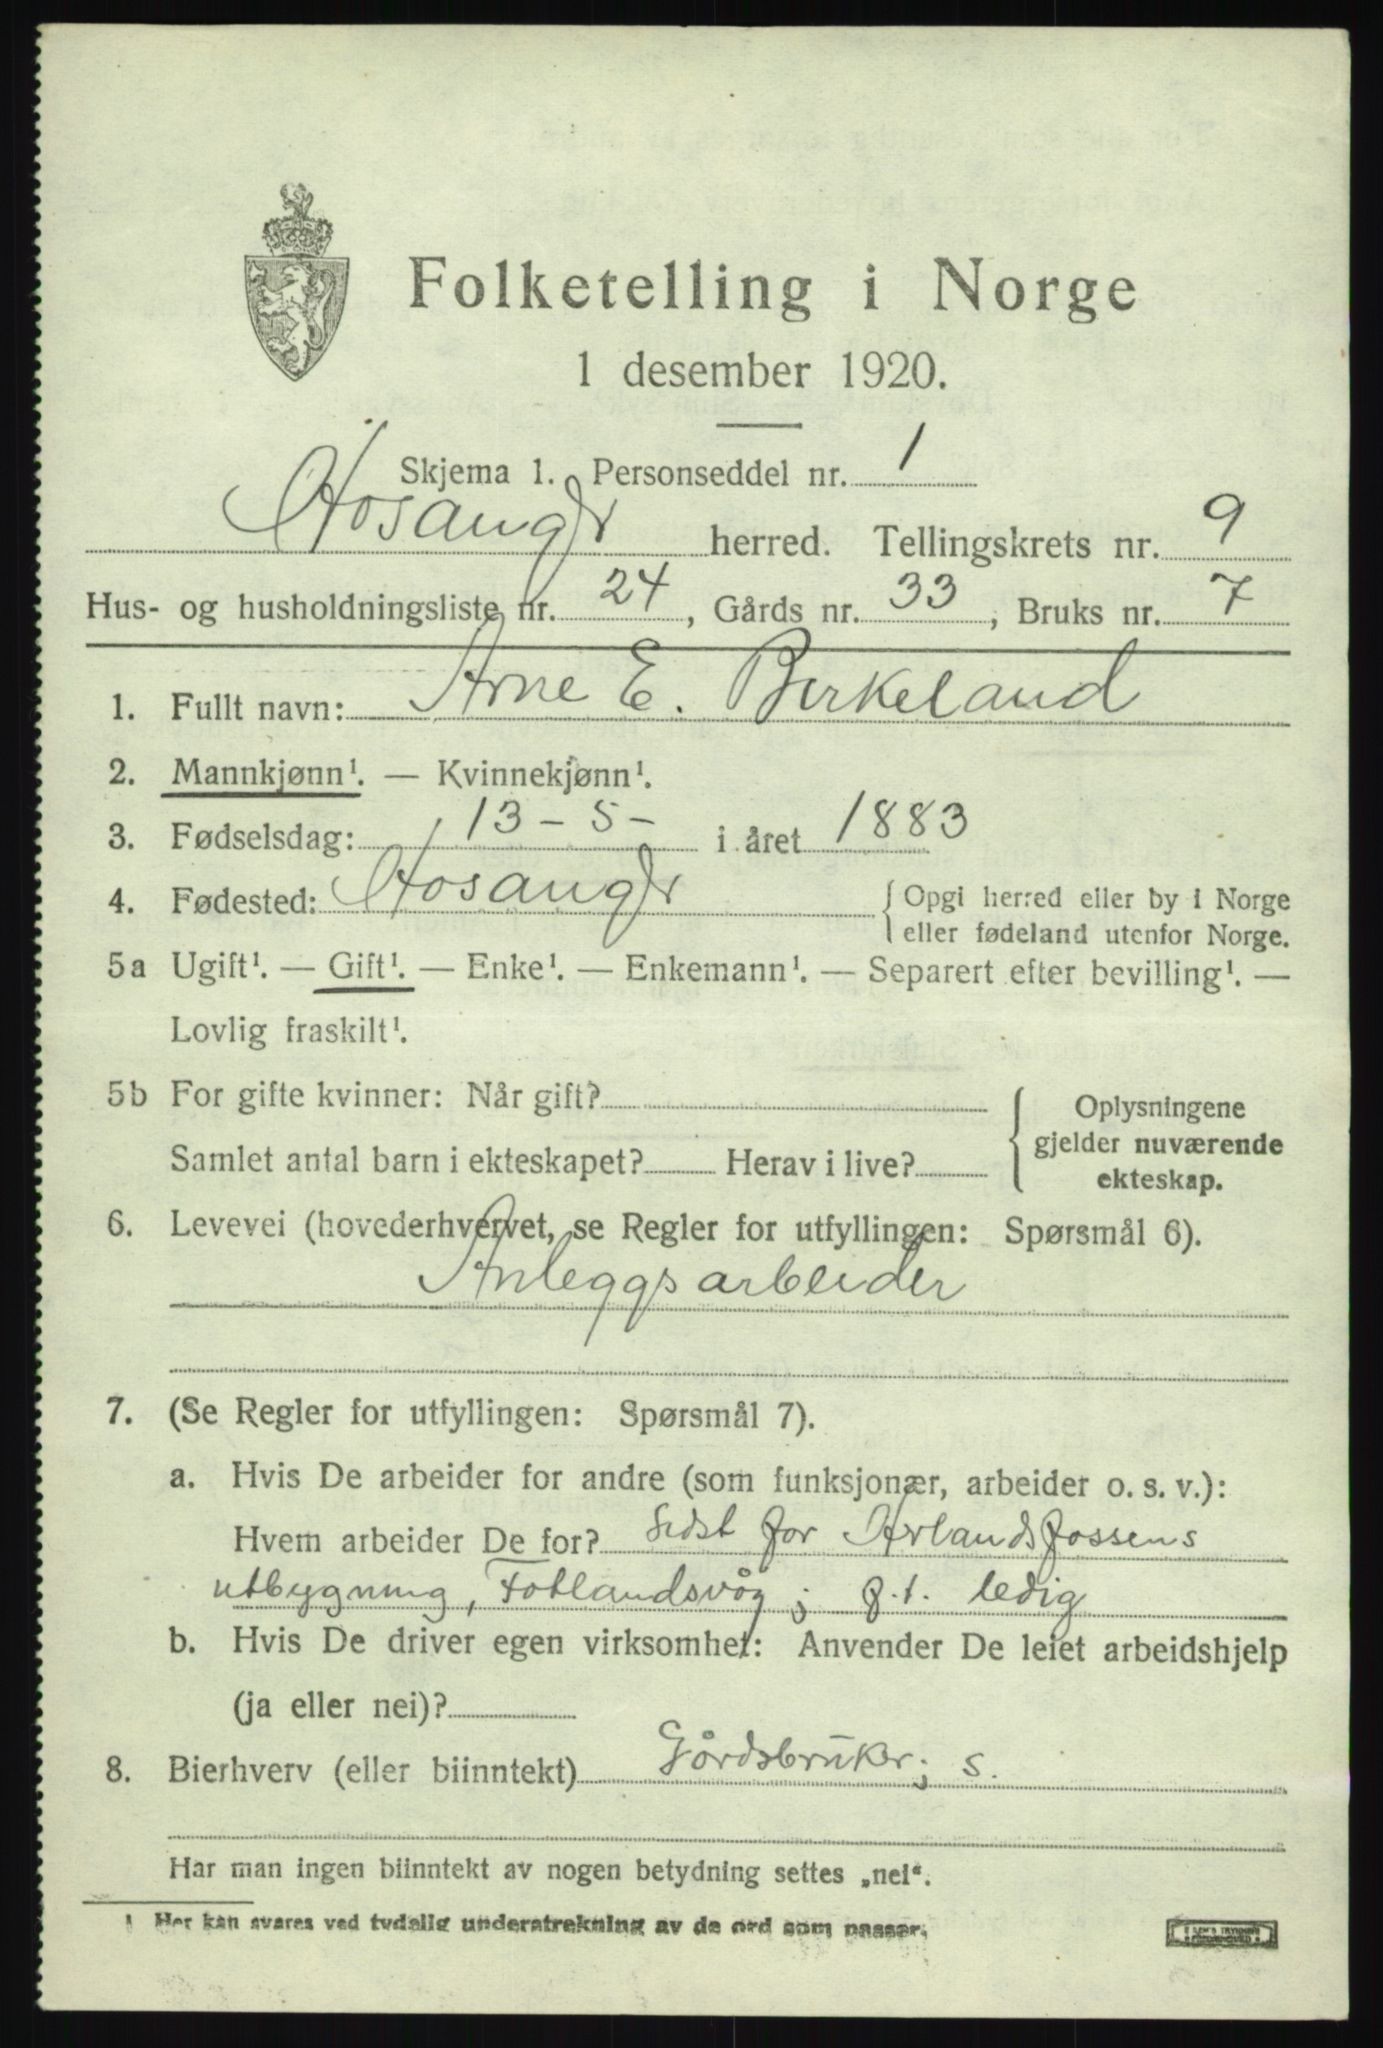 Folketelling i Norge
1 desember 1920.
Skjema 1. Personseddel nr. 1
Hosangr herred. Tellingskrets nr. 9
Hus- og husholdningsliste nr. 24, Gårds nr. 33, Bruks nr. 7
1. Fullt navn: Arne E. Birkeland
2. Mannkjønn¹. — Kvinnekjønn¹.
3. Fødselsdag: 13 - 5 - i året 1883
4. Fødested: Hosangr { Opgi herred eller by i Norge
eller fødeland utenfor Norge.
5a Ugift¹. — Gift¹. — Enke¹. — Enkemann¹. — Separert efter bevilling¹. —
Lovlig fraskilt¹.
5b For gifte kvinner: Når gift?
Samlet antal barn i ekteskapet? Herav i live?
{ Oplysningene
gjelder nuværende
ekteskap.
6. Levevei (hovederhvervet, se Regler for utfyllingen: Spørsmål 6).
Anleggsarbeider
7. (Se Regler for utfyllingen: Spørsmål 7).
a. Hvis De arbeider for andre (som funksjonær, arbeider o. s. v.):
Hvem arbeider De for? Sidst for Herlandsfossens
utbygning, Fotlandsvåg; f.t. ledig
b. Hvis De driver egen virksomhet: Anvender De leiet arbeidshjelp
(ja eller nei)?
8. Bierhverv (eller biinntekt) Gårdsbruker; s.
Har man ingen biinntekt av nogen betydning settes „nei“.
1 Her kan svares ved tydelig understrekning av de ord som passer.